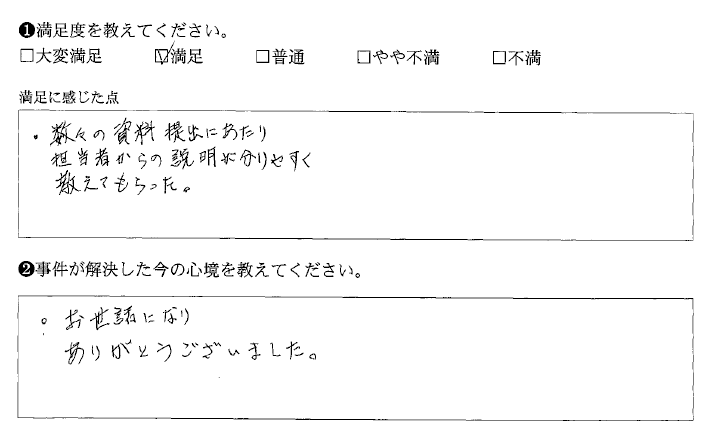 ❶満足度を教えてください。
□大変満足 ☑満足 □普通 □やや不満 □不満
満足に感じた点
・数々の資料提出にあたり
担当者からの説明が分りやすく
教えてもらった。
❷事件が解決した今の心境を教えてください。
。お世話になり
ありがとうございました。